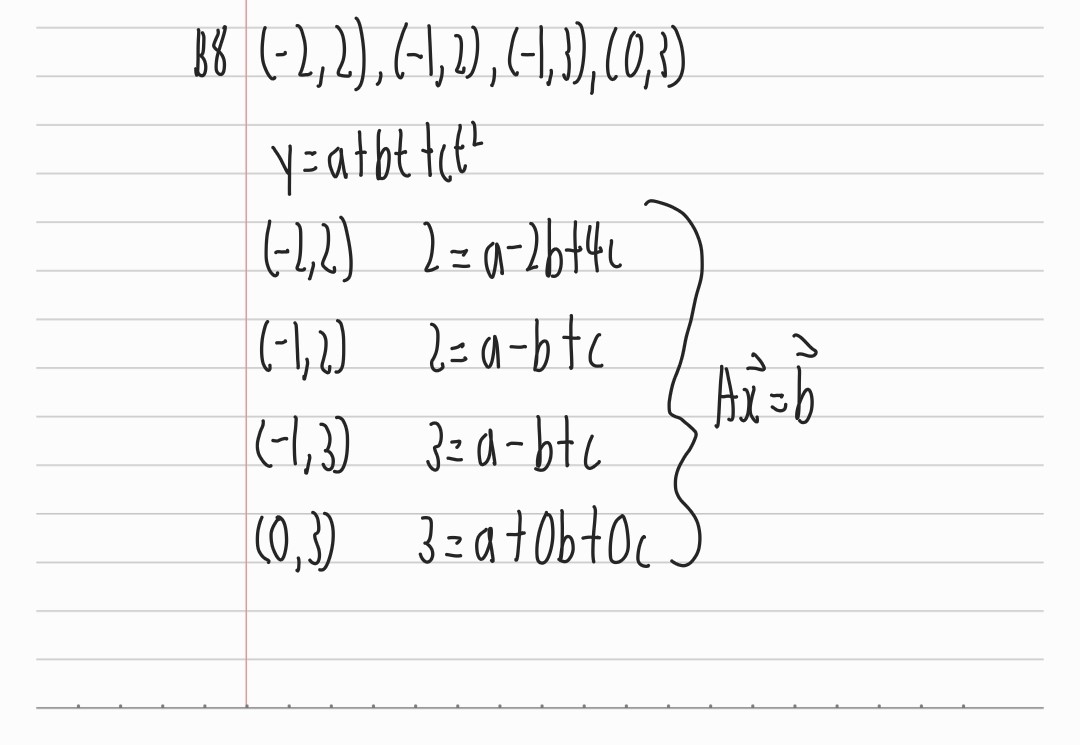 B8 (-2,2), (-1,2), (-1,3), (0,3)
y=a+bt+ct²
(-2,2) 2=a-2b+4c
(-1,2) 2=a-b+c
Ax⃗=b⃗
(-1,3) 3=a-b+c
(0,3) 3=a+0b+0c